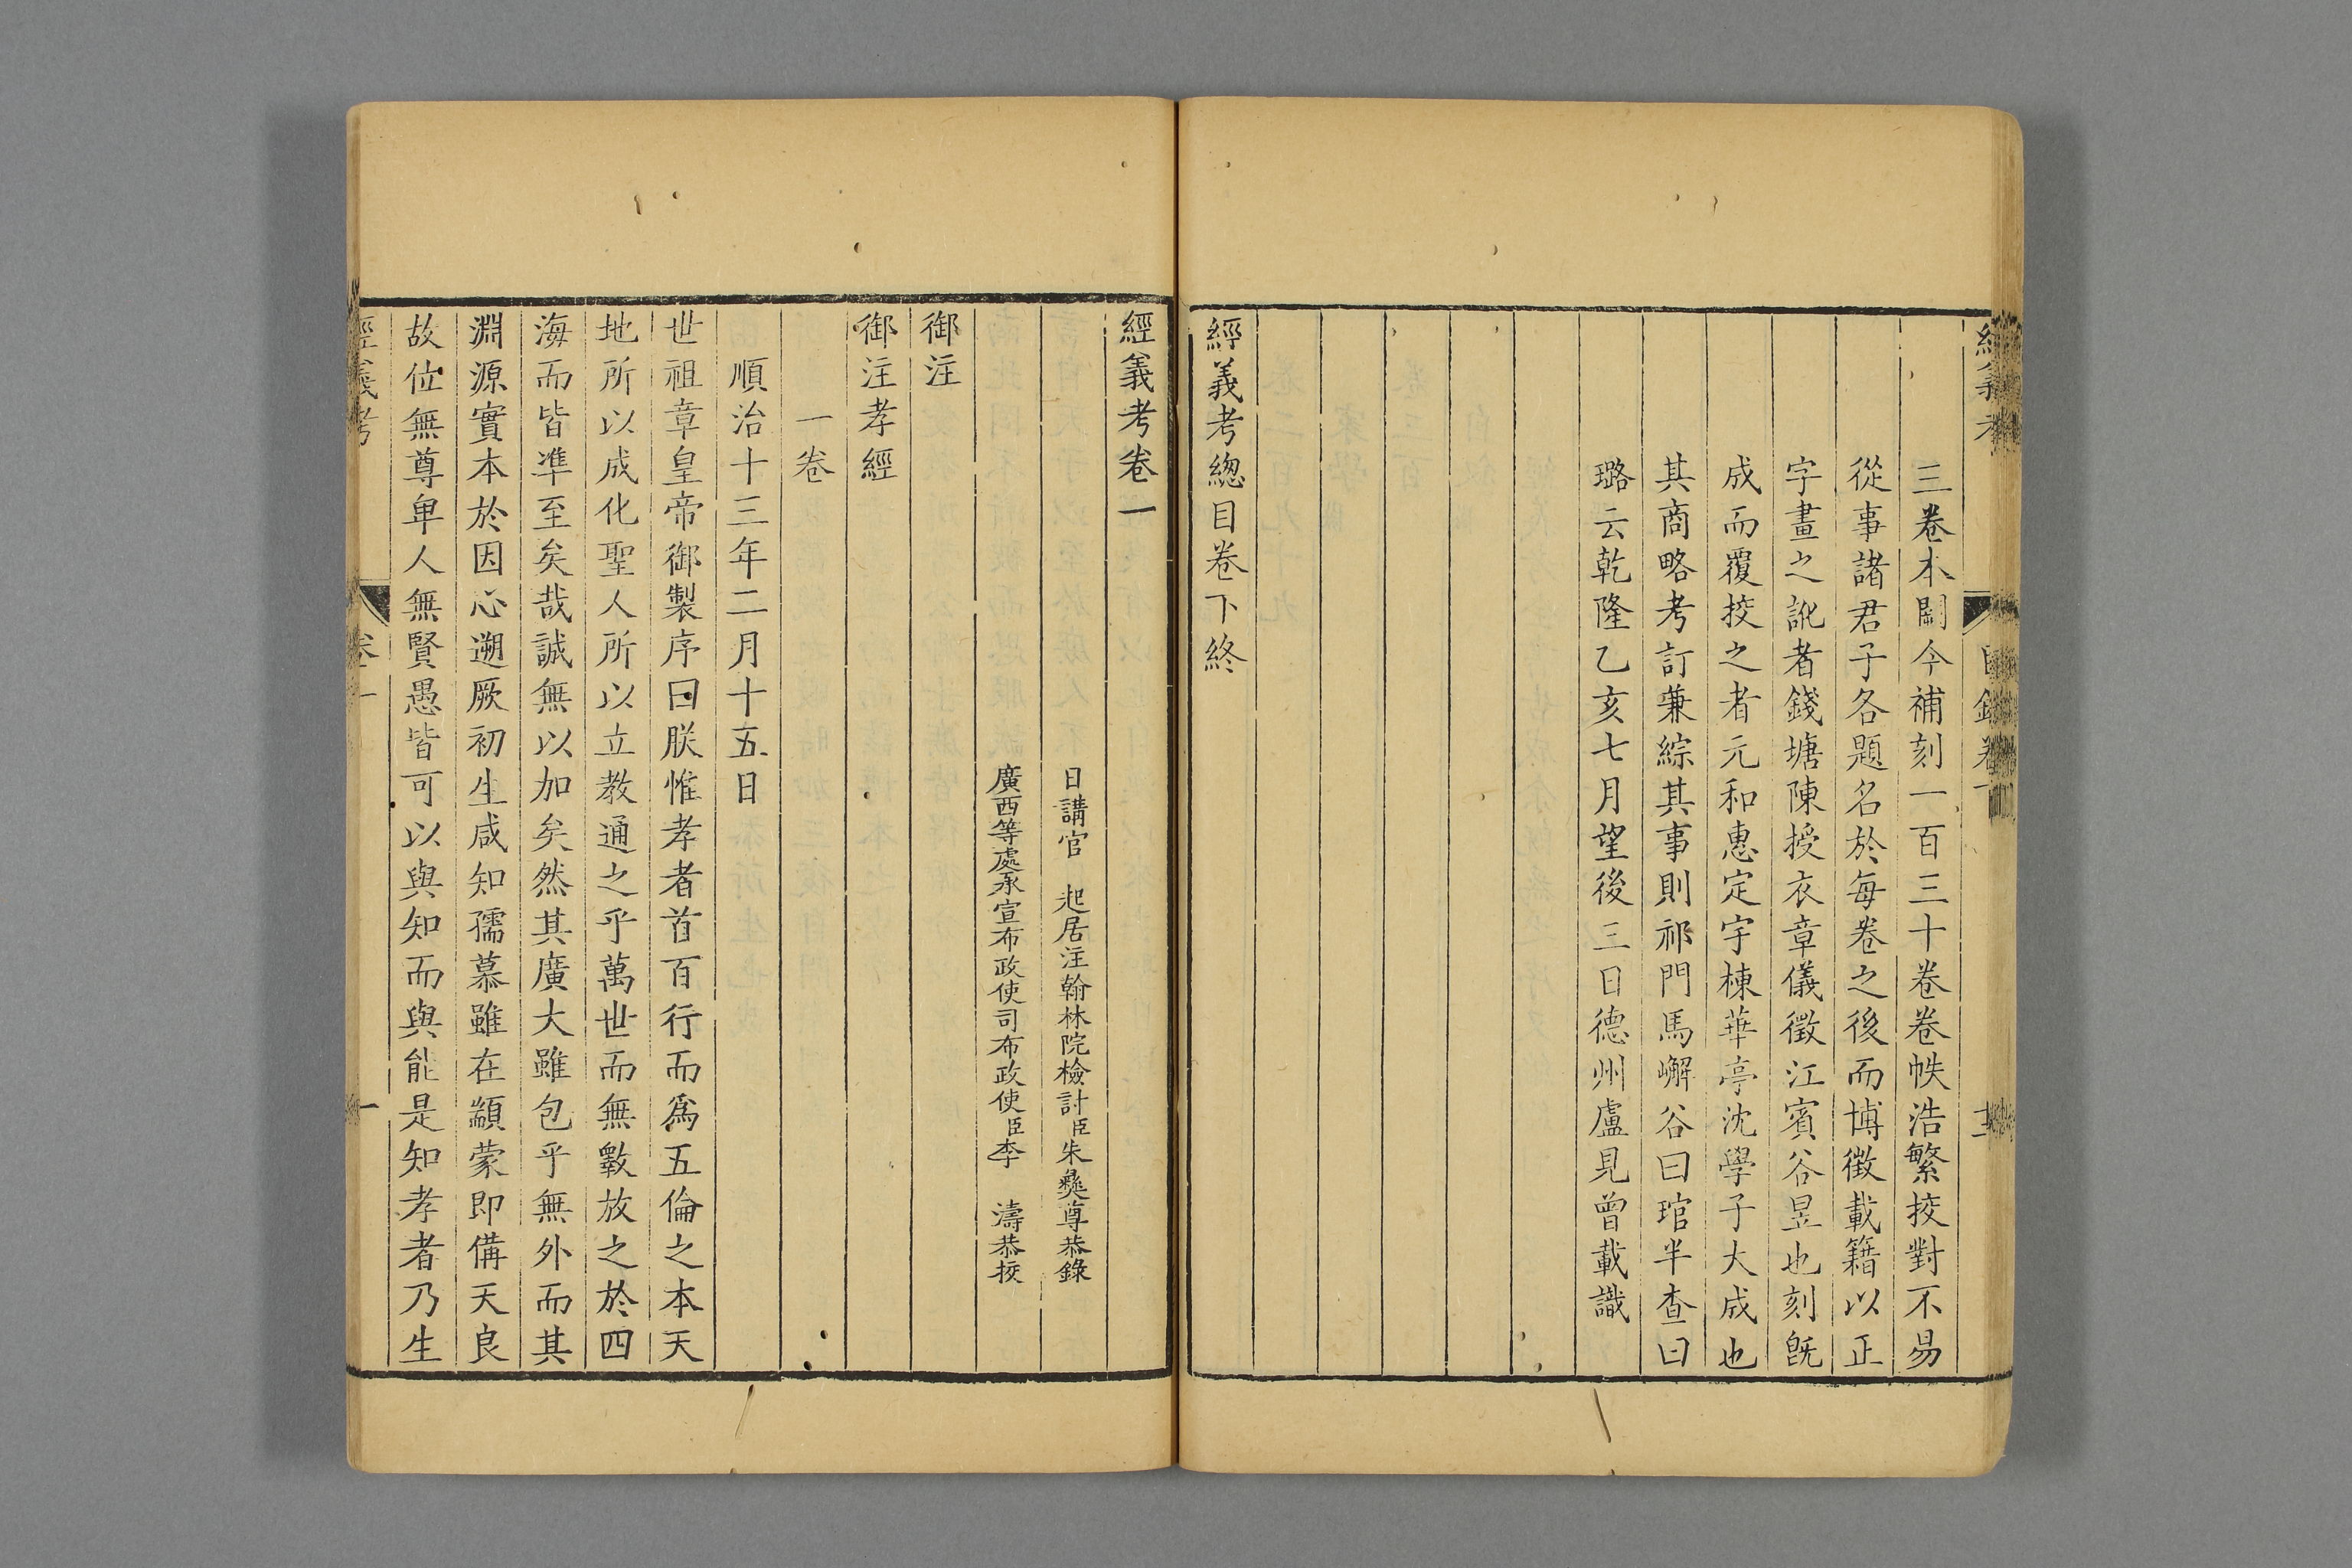 三卷本闕今補刻一百三十卷卷帙浩繁挍對不易
從事諸君子各題名於每卷之後而博徵載籍以正
字畫之訛者錢塘陳授衣章儀徵江賓谷昱也刻旣
成而覆挍之者元和惠定宇棟華亭沈學子大成也
其商略考訂兼綜其事則祁門馬嶰谷曰琯半查曰
璐云乾隆乙亥七月望後三日德州盧見曾載識
經義考總目卷下終
經義考卷一
日講官 起居注翰林院檢討臣朱彝尊恭錄
廣西等處承宣布政使司布政使臣李 濤恭挍
御注
御注孝經
一卷
順治十三年二月十五日
世祖章皇帝御製序曰朕惟孝者首百行而爲五倫之本天
地所以成化聖人所以立教通之乎萬世而無斁放之於四
海而皆準至矣哉誠無以加矣然其廣大雖包乎無外而其
淵源實本於因心遡厥初生咸知孺慕雖在顓蒙即備天良
故位無尊卑人無賢愚皆可以與知而與能是知孝者乃生
經義考 卷一 一